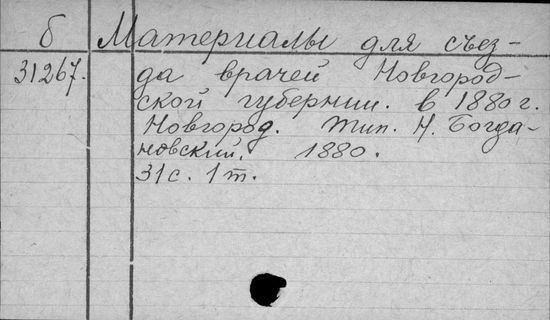 б Материалы для съез-
31267. да врачей Новгород-
ской губернии. в 1880 г.
Новгород. Тип. Н. Богда-
новский. 1880.
31 с. 1 т.